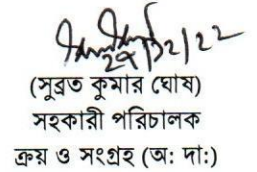 ২৭/১২/২২
(সুব্রত কুমার ঘোষ)
সহকারী পরিচালক
ক্রয় ও সংগ্রহ (অ: দা:)